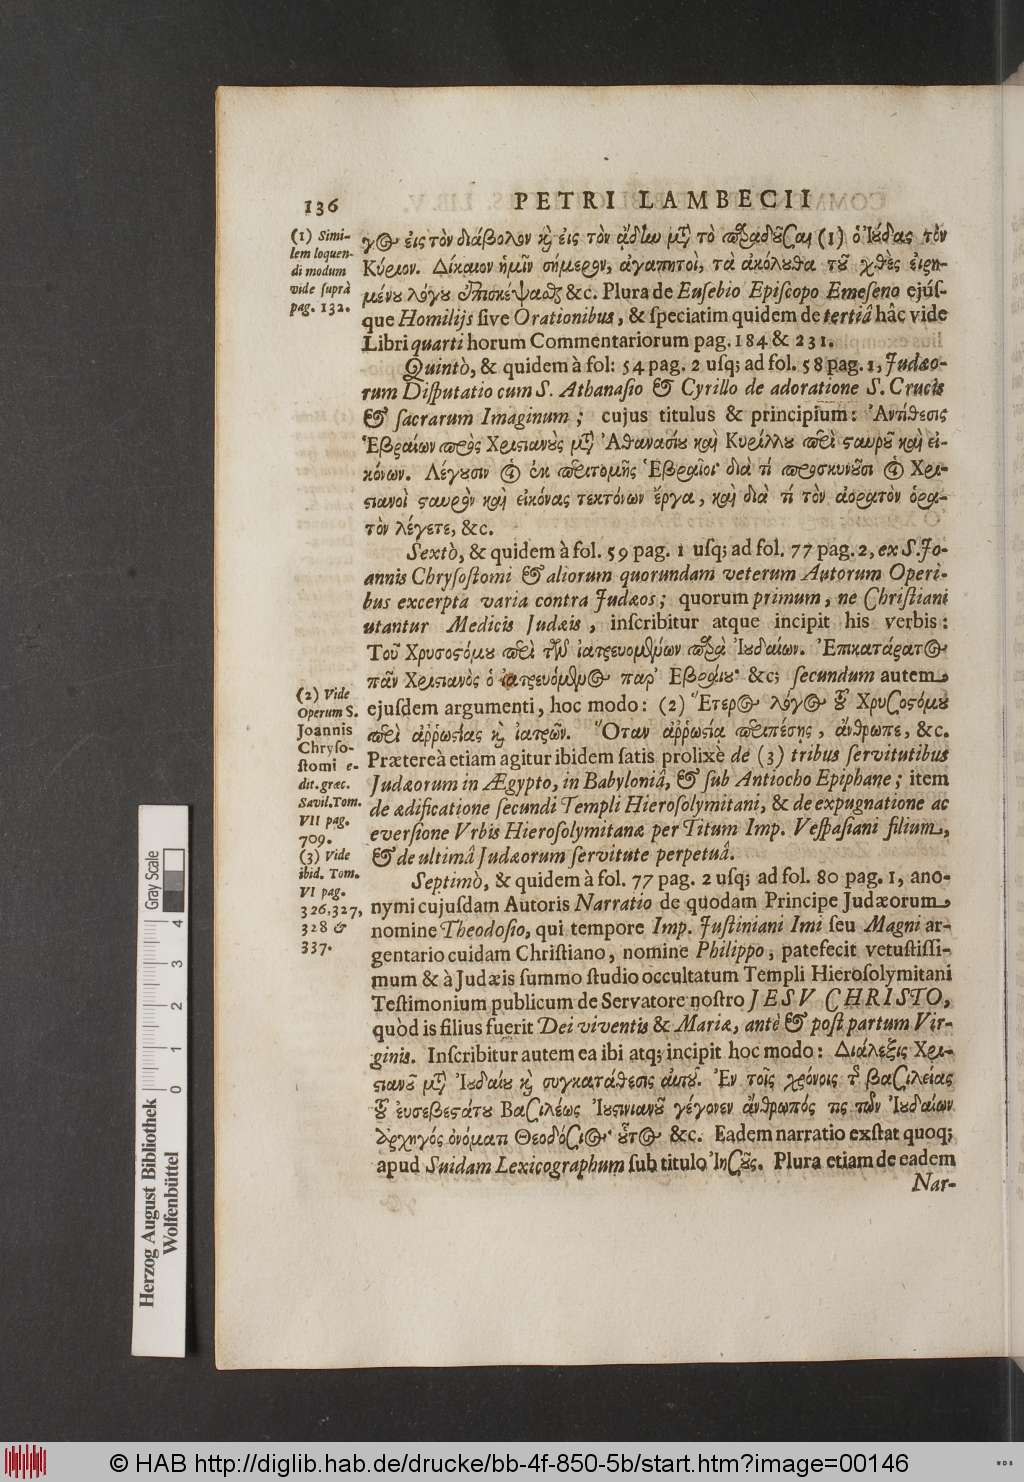 136
PETRI LAMBECII
(1) Simi-
lem loquen-
di modum
vide suprà
pag. 132.
γος εἰς τὸν διάβολον καὶ εἰς τὸν ᾅδην μετὰ τὸ παραδοῦσαι (1) ὁ Ἰούδας τὸν
Κύριον. Δίκαιον ἡμῖν σήμερον, ἀγαπητοὶ, τὰ ἀκόλουθα τοῦ χθὲς εἰρη-
μένου λόγου ἐπισκέψασθαι &c. Plura de Eusebio Episcopo Emeseno ejús-
que Homilijs sive Orationibus, & speciatim quidem de tertiâ hâc vide
Libri quarti horum Commentariorum pag. 184 & 231.
Quintò, & quidem à fol: 54 pag. 2 usq; ad fol. 58 pag. 1, Judæo-
rum Disputatio cum S. Athanasio & Cyrillo de adoratione S. Crucis
& sacrarum Imaginum; cujus titulus & principium: Ἀντίθεσις
Ἑβραίων πρὸς Χριστιανοὺς μετὰ Ἀθανασίου καὶ Κυρίλλου περὶ σταυροῦ καὶ εἰ-
κόνων. Λέγουσιν οἱ ἐκ περιτομῆς Ἑβραῖοι· διὰ τί προσκυνοῦσι οἱ Χρι-
στιανοὶ σταυρὸν καὶ εἰκόνας τεκτόνων ἔργα, καὶ διὰ τί τὸν ἀόρατὸν ὁρα-
τὸν λέγετε, &c.
Sextò, & quidem à fol. 59 pag. 1 usq; ad fol. 77 pag. 2, ex S. Jo-
annis Chrysostomi & aliorum quorundam veterum Autorum Operi-
bus excerpta varia contra Judæos; quorum primum, ne Christiani
utantur Medicis Judæis, inscribitur atque incipit his verbis:
Τοῦ Χρυσοστόμου περὶ τῶν ἰατρευομένων παρὰ Ἰουδαίων. Ἐπικατάρατος
πᾶν Χριστιανὸς ὁ ἰατρευόμενος παρ' Ἑβραίου· &c; secundum autem
(2) Vide
Operum S.
Joannis
Chryso-
stomi e-
dit. græc.
Savil. Tom.
VII pag.
709.
(3) Vide
ibid. Tom.
VI pag.
326.327,
328 &
337.
ejusdem argumenti, hoc modo: (2) Ἕτερος λόγος τοῦ Χρυσοστόμου
περὶ ἀῤῥωστίας καὶ ἰατρῶν. Ὅταν ἀῤῥωστία περιπέσῃς, ἄνθρωπε, &c.
Prætereà etiam agitur ibidem satis prolixè de (3) tribus servitutibus
Judæorum in Ægypto, in Babyloniâ, & sub Antiocho Epiphane; item
de ædificatione secundi Templi Hierosolymitani, & de expugnatione ac
eversione Vrbis Hierosolymitanæ per Titum Imp. Vespasiani filium,
& de ultimâ Judæorum servitute perpetuâ.
Septimò, & quidem à fol. 77 pag. 2 usq; ad fol. 80 pag. 1, ano-
nymi cujusdam Autoris Narratio de quodam Principe Judæorum
nomine Theodosio, qui tempore Imp. Justiniani Imi seu Magni ar-
gentario cuidam Christiano, nomine Philippo, patefecit vetustissi-
mum & à Judæis summo studio occultatum Templi Hierosolymitani
Testimonium publicum de Servatore nostro JESV CHRISTO,
quòd is filius fuerit Dei viventis & Mariæ, antè & post partum Vir-
ginis. Inscribitur autem ea ibi atq; incipit hoc modo: Διάλεξις Χρι-
στιανοῦ μετὰ Ἰουδαίου καὶ συγκατάθεσις αὐτοῦ. Ἐν τοῖς χρόνοις τῆς βασιλείας
τοῦ εὐσεβεστάτου Βασιλέως Ἰουστινιανοῦ γέγονεν ἄνθρωπός τις τῶν Ἰουδαίων
ἀρχηγός ὀνόματι Θεοδόσιος· οὗτος &c. Eadem narratio exstat quoq;
apud Suidam Lexicographum sub titulo Ἰησοῦς. Plura etiam de eadem
Nar-
Gray Scale
0 1 2 3 4
Herzog August Bibliothek
Wolfenbüttel
© HAB http://diglib.hab.de/drucke/bb-4f-850-5b/start.htm?image=00146